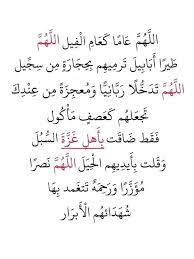 اللَّهُمَّ عَامًا كَعَامِ الْفِيلِ اللَّهُمَّ
طَيْرًا أَبَابِيلَ تَرمِيهِم بِحِجَارَةٍ مِن سِجِّيل
اللَّهُمَّ تَدَخُّلًا رَبَّانِيًّا وَمُعجِزَةً مِن عِندِكَ
تَجعَلهُم كَعَصفٍ مَأكُول
فَقَط ضَاقَت بِأَهلِ غَزَّةَ السُّبُل
وَقَلت بِأَيدِيهِم الحِيَل اللَّهُمَّ نَصرًا
مُؤَزَّرًا وَرَحمَةً تَتَغمد بِهَا
شُهَدَائهُم الأَبرَار